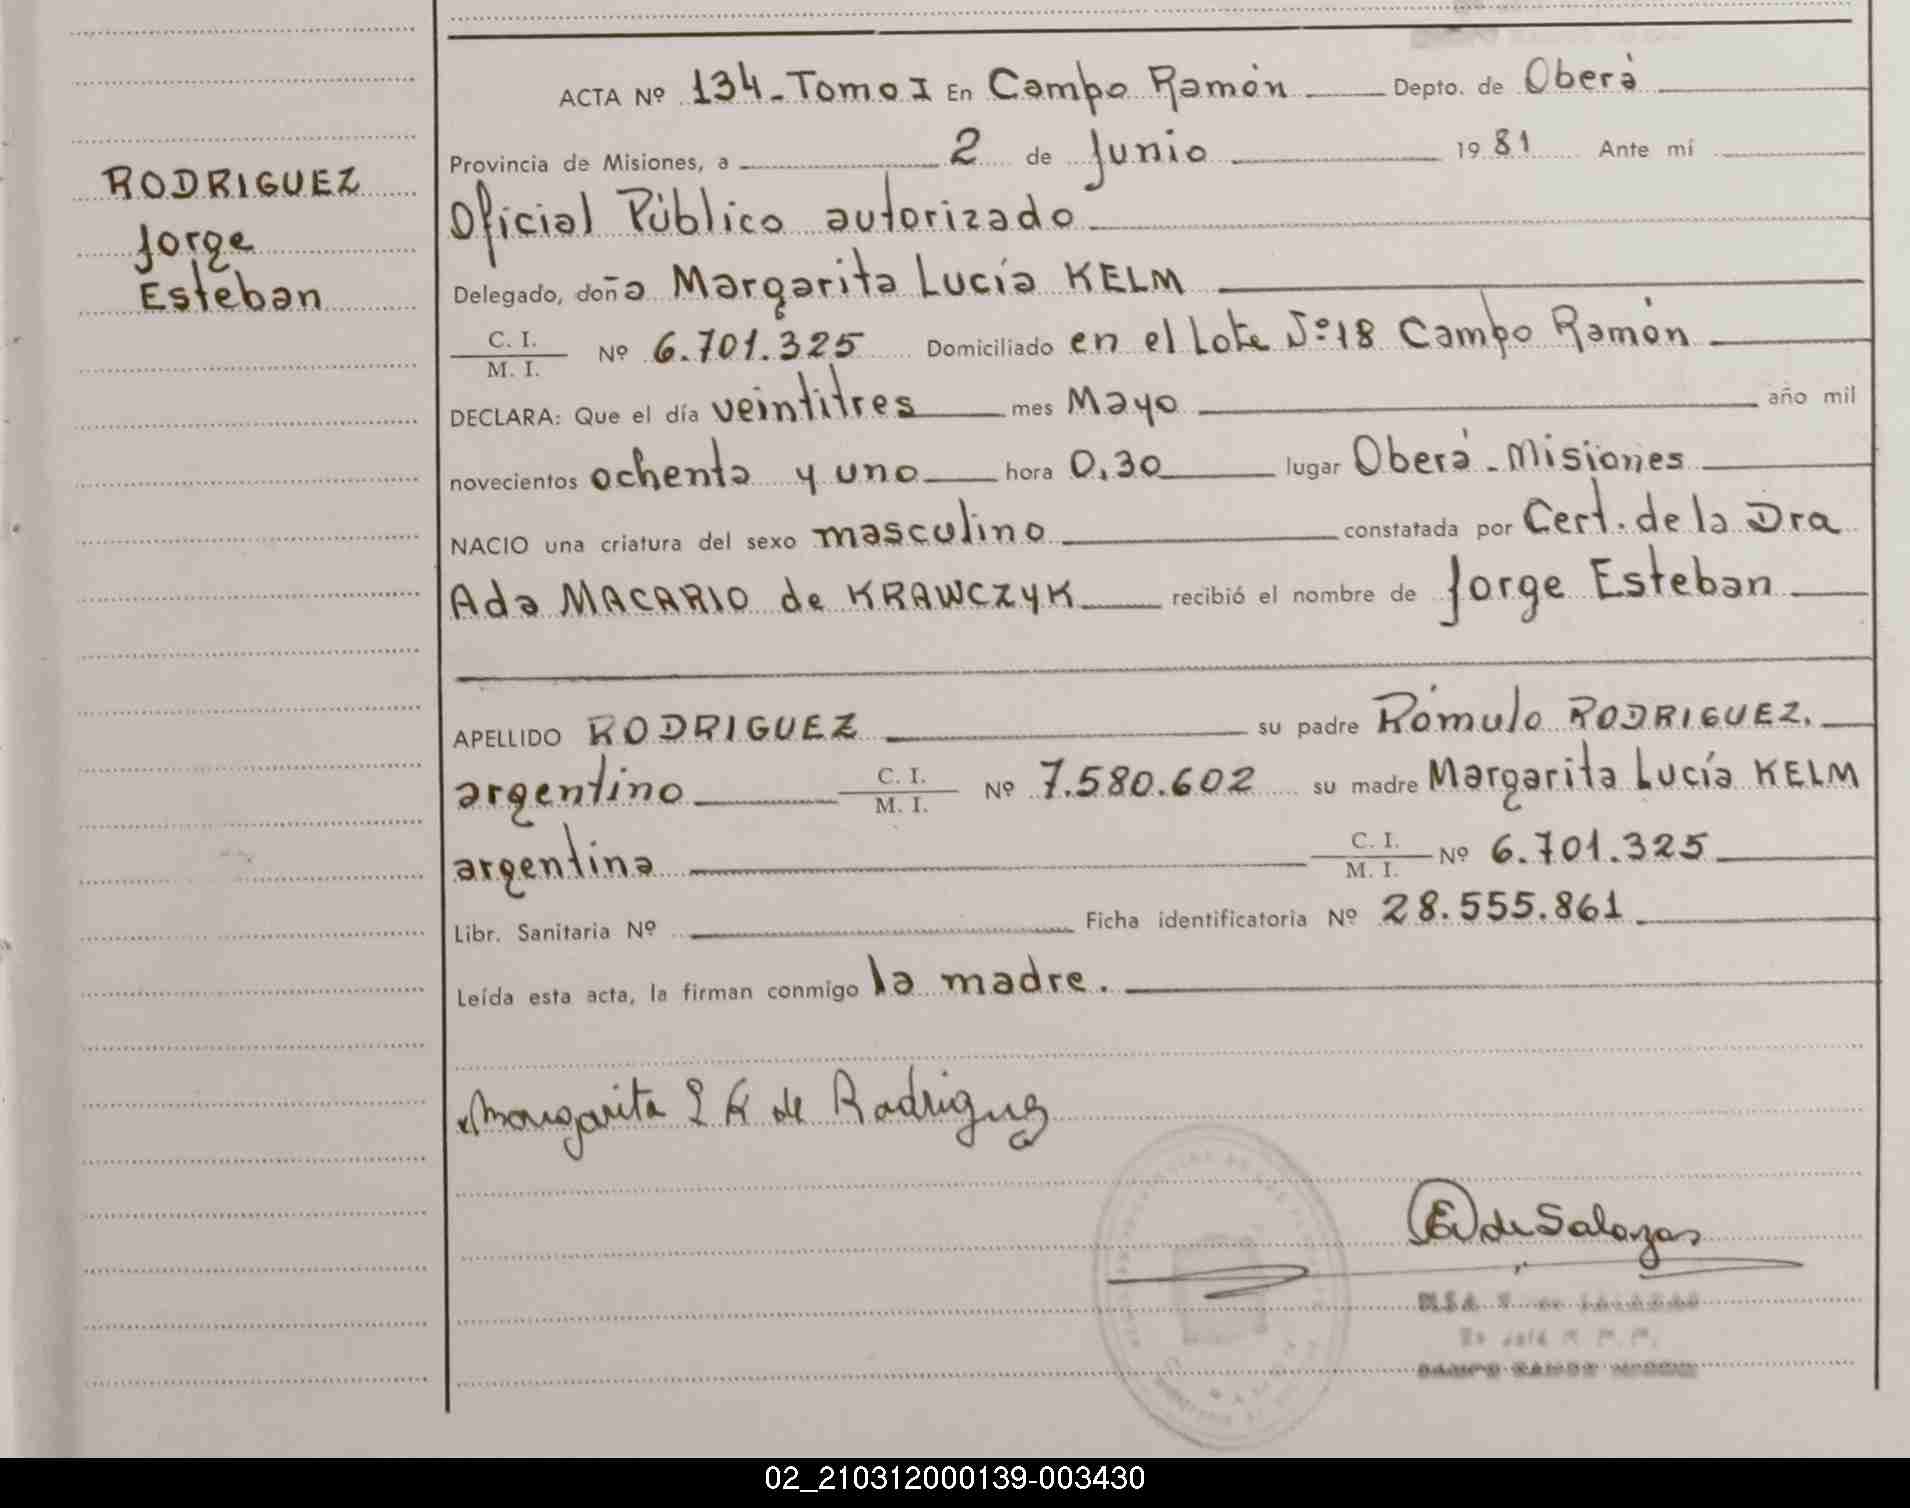 RODRIGUEZ
Jorge
Esteban
ACTA Nº 134-Tomo I En Campo Ramón Depto. de Oberá
Provincia de Misiones, a 2 de Junio 1981 Ante mí
Oficial Público autorizado
Delegado, doña Margarita Lucía KELM
C. I.
M. I. Nº 6.701.325 Domiciliado en el Lote Nº 18 Campo Ramón
DECLARA: Que el día veintitres mes Mayo año mil
novecientos ochenta y uno hora 0,30 lugar Oberá-Misiones
NACIO una criatura del sexo masculino constatada por Cert. de la Dra
Ada MACARIO de KRAWCZYK recibió el nombre de Jorge Esteban
APELLIDO RODRIGUEZ su padre Rómulo RODRIGUEZ.
argentino C. I. M. I. Nº 7.580.602 su madre Margarita Lucía KELM
argentina C. I. M. I. Nº 6.701.325
Libr. Sanitaria Nº Ficha identificatoria Nº 28.555.861
Leída esta acta, la firman conmigo la madre.
Margarita L K de Rodriguez
E de Salazar
02_210312000139-003430